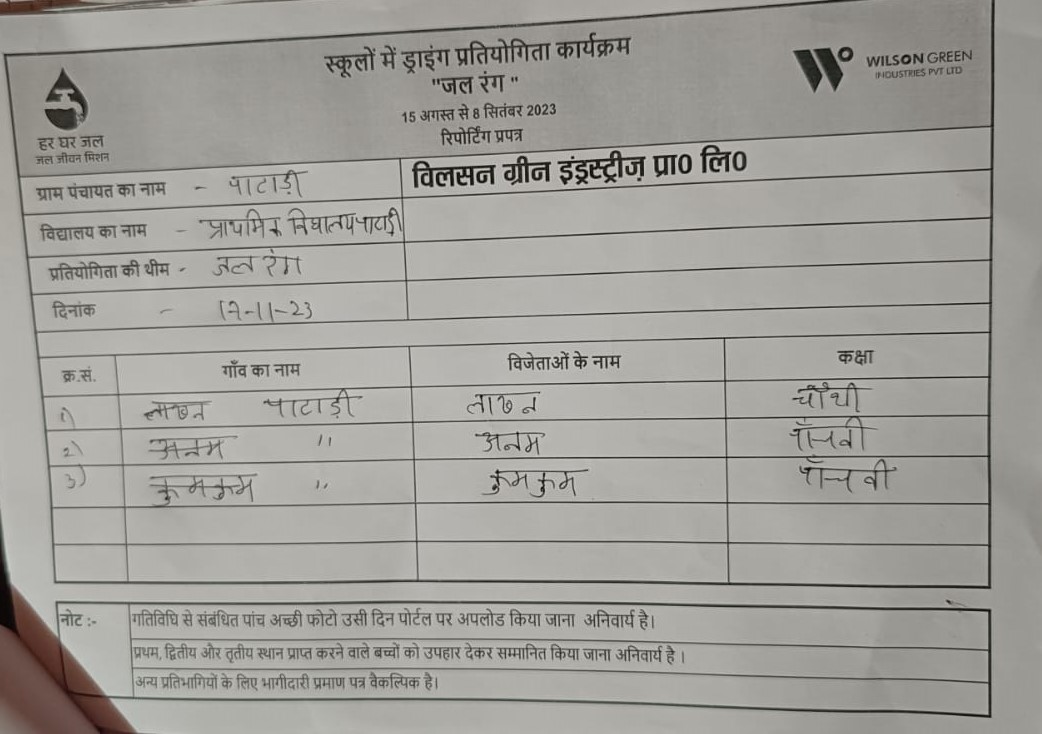 स्कूलों में ड्राइंग प्रतियोगिता कार्यक्रम
"जल रंग "
15 अगस्त से 8 सितंबर 2023
रिपोर्टिंग प्रपत्र
हर घर जल
जल जीवन मिशन
WILSON GREEN
INDUSTRIES PVT LTD
ग्राम पंचायत का नाम - पाटाड़ी विलसन ग्रीन इंड्रस्ट्रीज़ प्रा0 लि0
विद्यालय का नाम - प्राथमिक विद्यालय पाटाड़ी
प्रतियोगिता की थीम - जल रंग
दिनांक - 17-11-23
क्र.सं. गाँव का नाम विजेताओं के नाम कक्षा
1) लाछन पाटाड़ी लाछन चौथी
2) अनम " अनम पाँचवी
3) कुमकुम " कुमकुम पाँचवी
नोट :- गतिविधि से संबंधित पांच अच्छी फोटो उसी दिन पोर्टल पर अपलोड किया जाना अनिवार्य है।
प्रथम, द्वितीय और तृतीय स्थान प्राप्त करने वाले बच्चों को उपहार देकर सम्मानित किया जाना अनिवार्य है ।
अन्य प्रतिभागियों के लिए भागीदारी प्रमाण पत्र वैकल्पिक है।